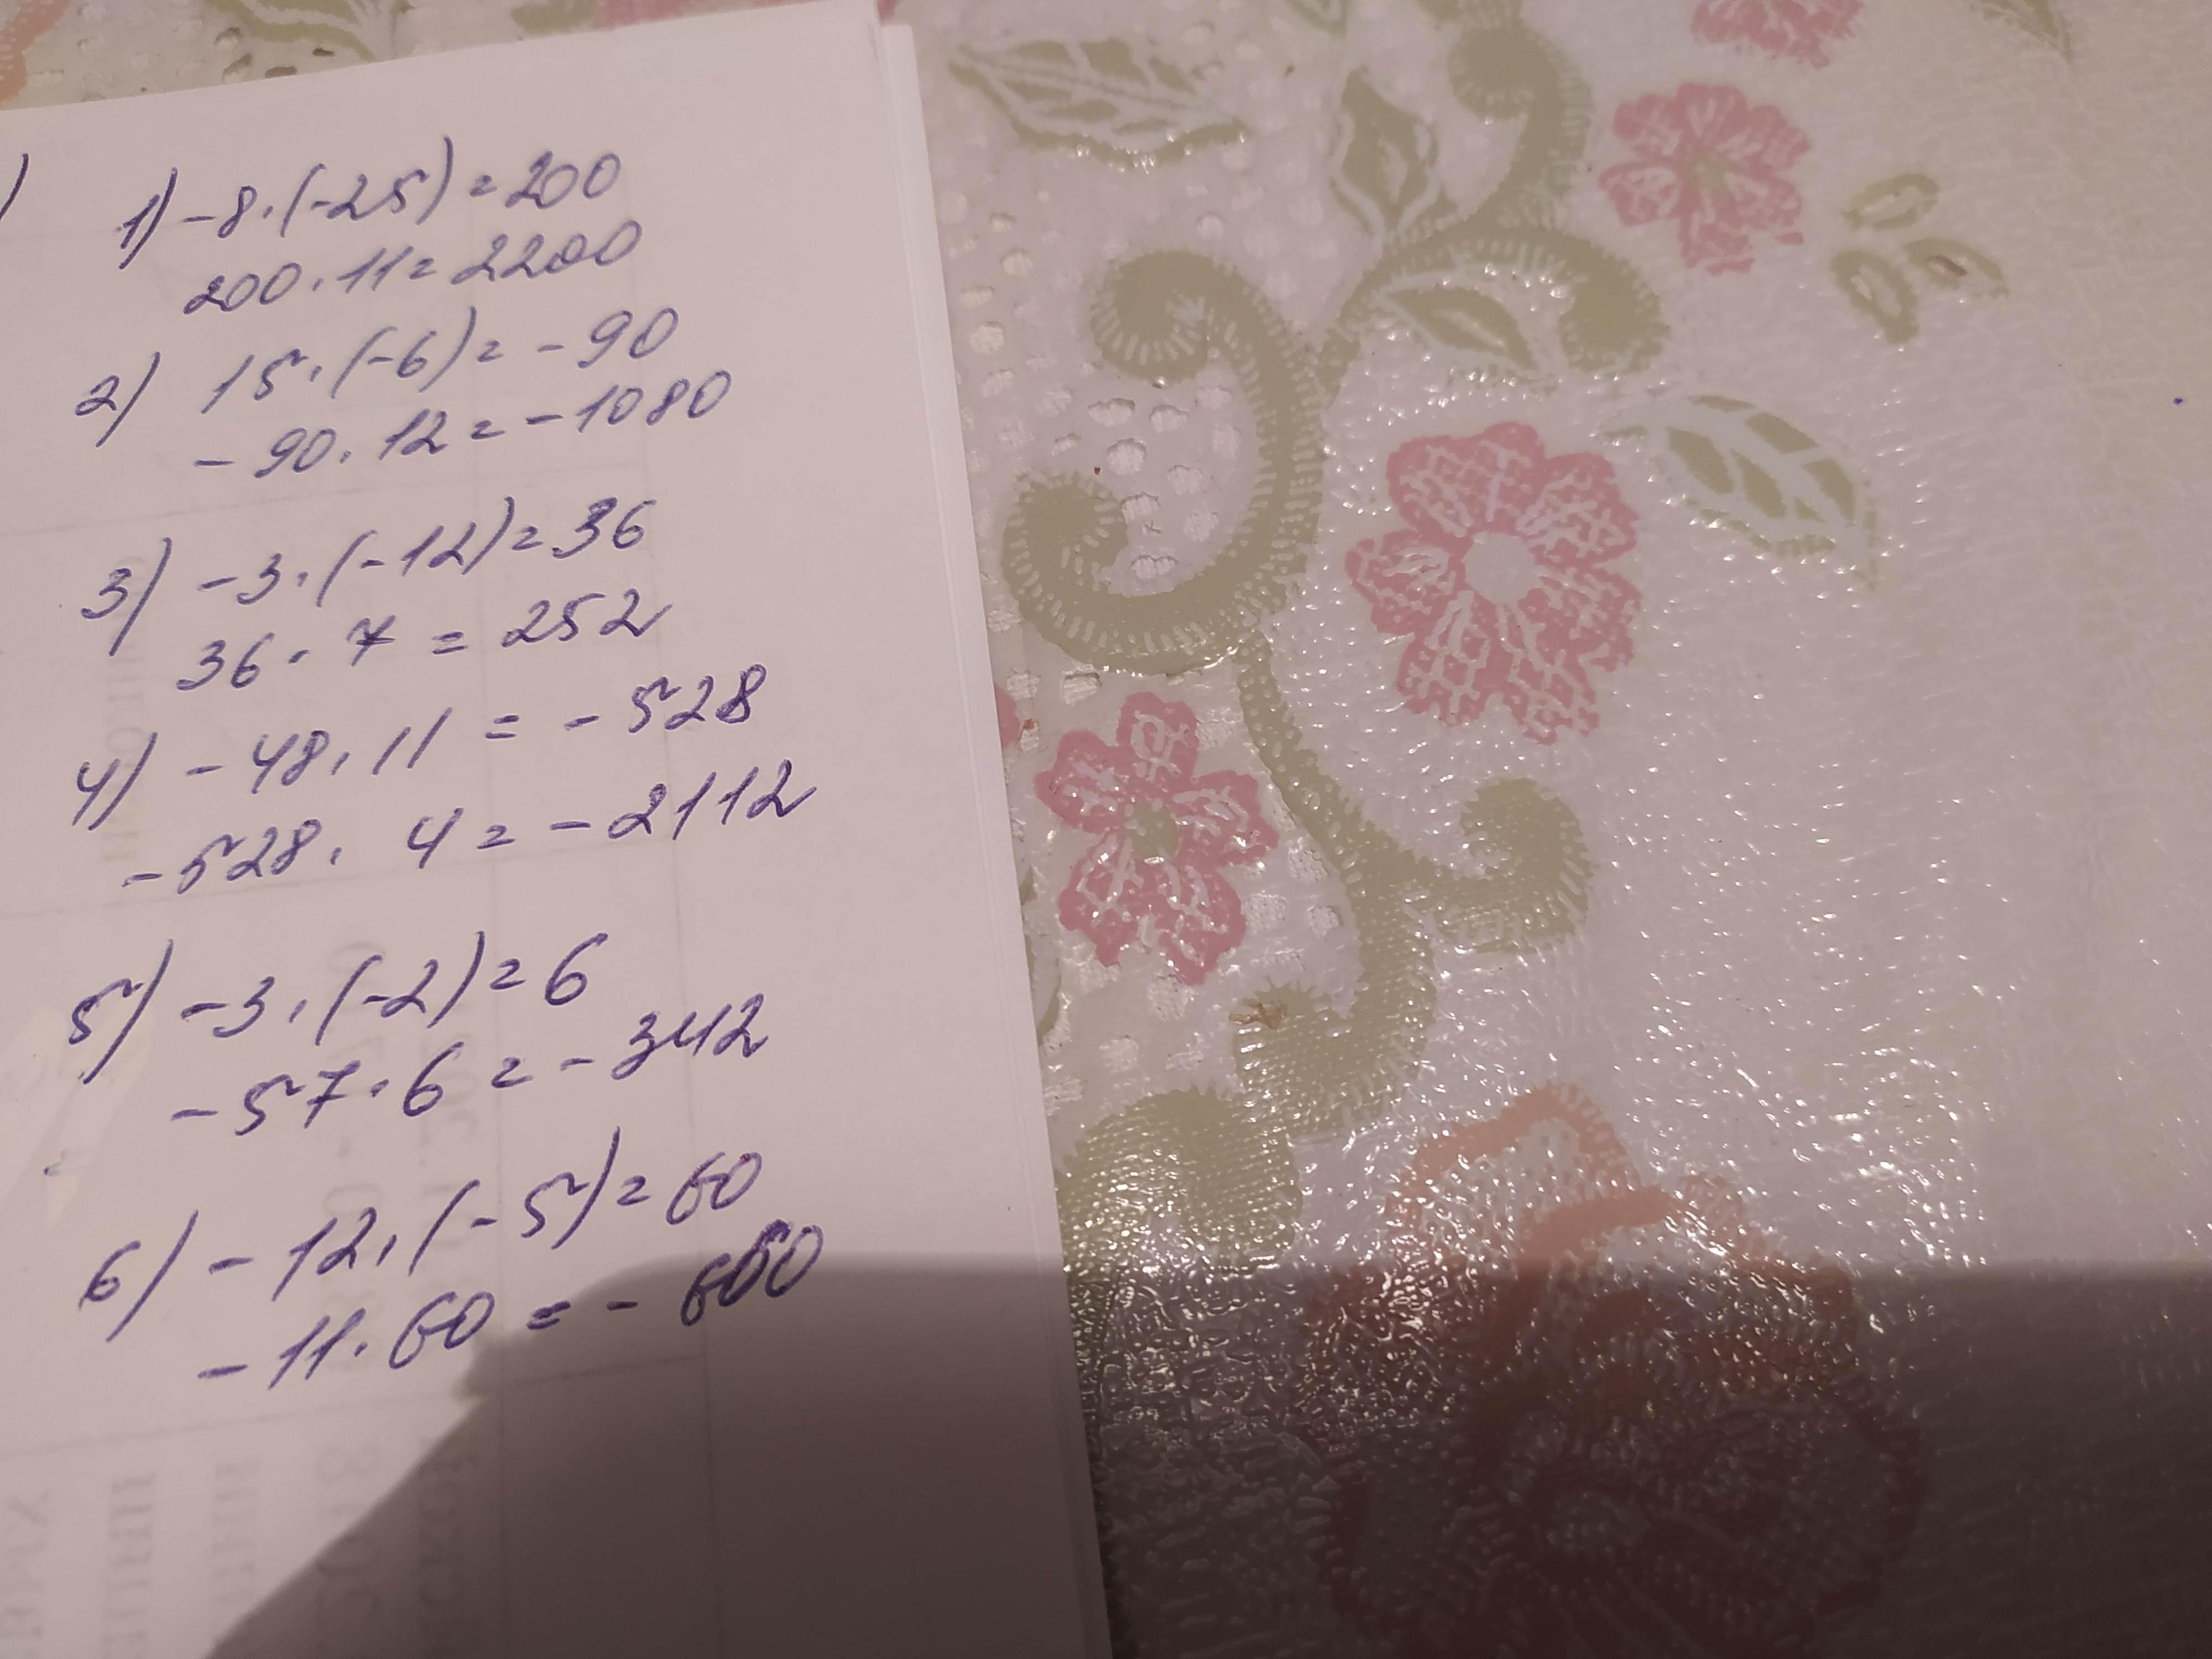 )
1) -8·(-25)=200
200·11=2200
2) 15·(-6)=-90
-90·12=-1080
3) -3·(-12)=36
36·7=252
4) -48·11=-528
-528·4=-2112
5) -3·(-2)=6
-57·6=-342
6) -12·(-5)=60
-11·60=-660